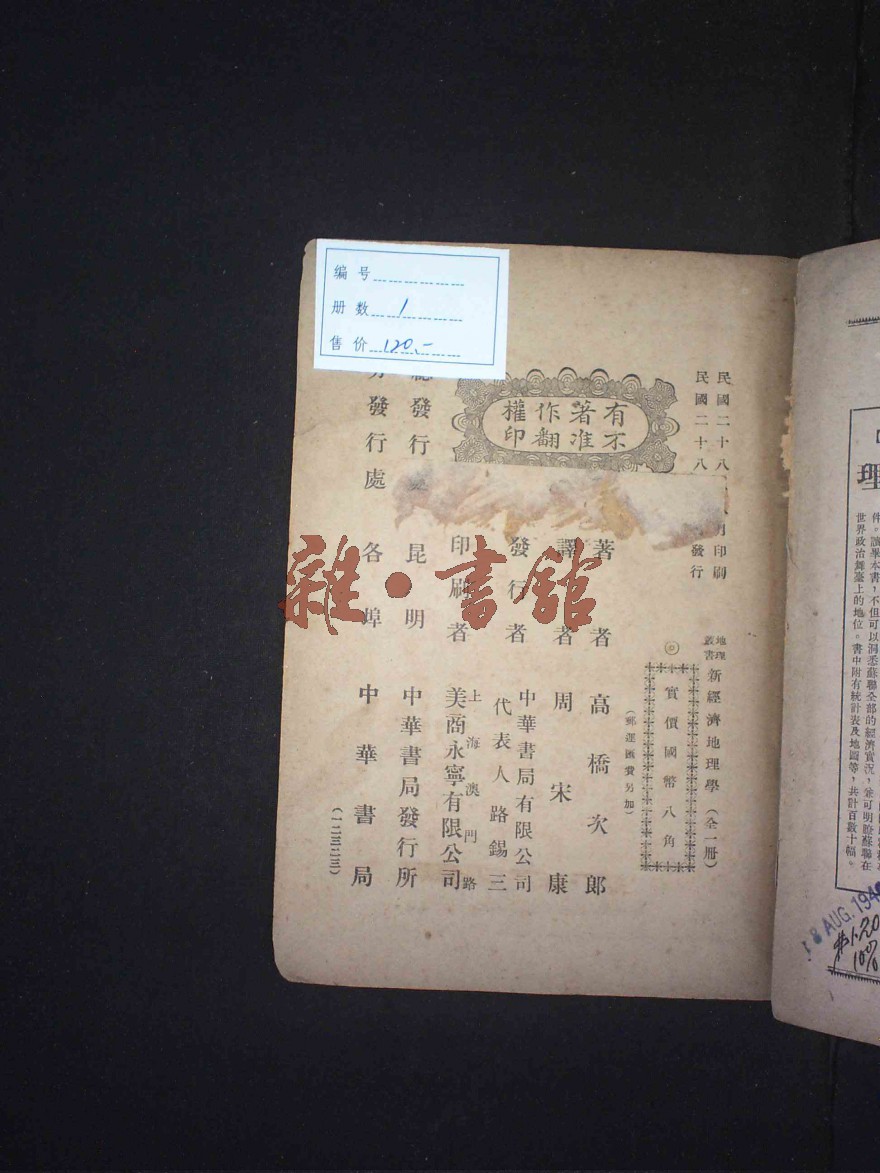 编号
册数 1
售价 120.-
民國二十八
印刷
民國二十八
發行
有著作權
不准翻印
地理叢書 新經濟地理學（全一册）
實價國幣八角
（郵運匯費另加）
著者 高橋次郎
譯者 周宋康
發行者 中華書局有限公司
代表人路錫三
印刷者 上海澳門路
美商永寧有限公司
總發行 昆明 中華書局發行所
分發行處 各埠 中華書局
（一二三三二三）
雜·書館
理
件。讀畢本書，不但可以洞悉蘇聯全部的經濟實況，並可明瞭蘇聯在
世界政治舞臺上的地位。書中附有統計表及地圖等，共計百數十幅。
8 AUG. 194
1.20
10%